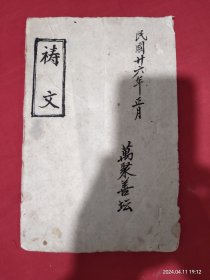 民國廿六年正月
萬聚善坛
祷文
2024.04.11 19:12